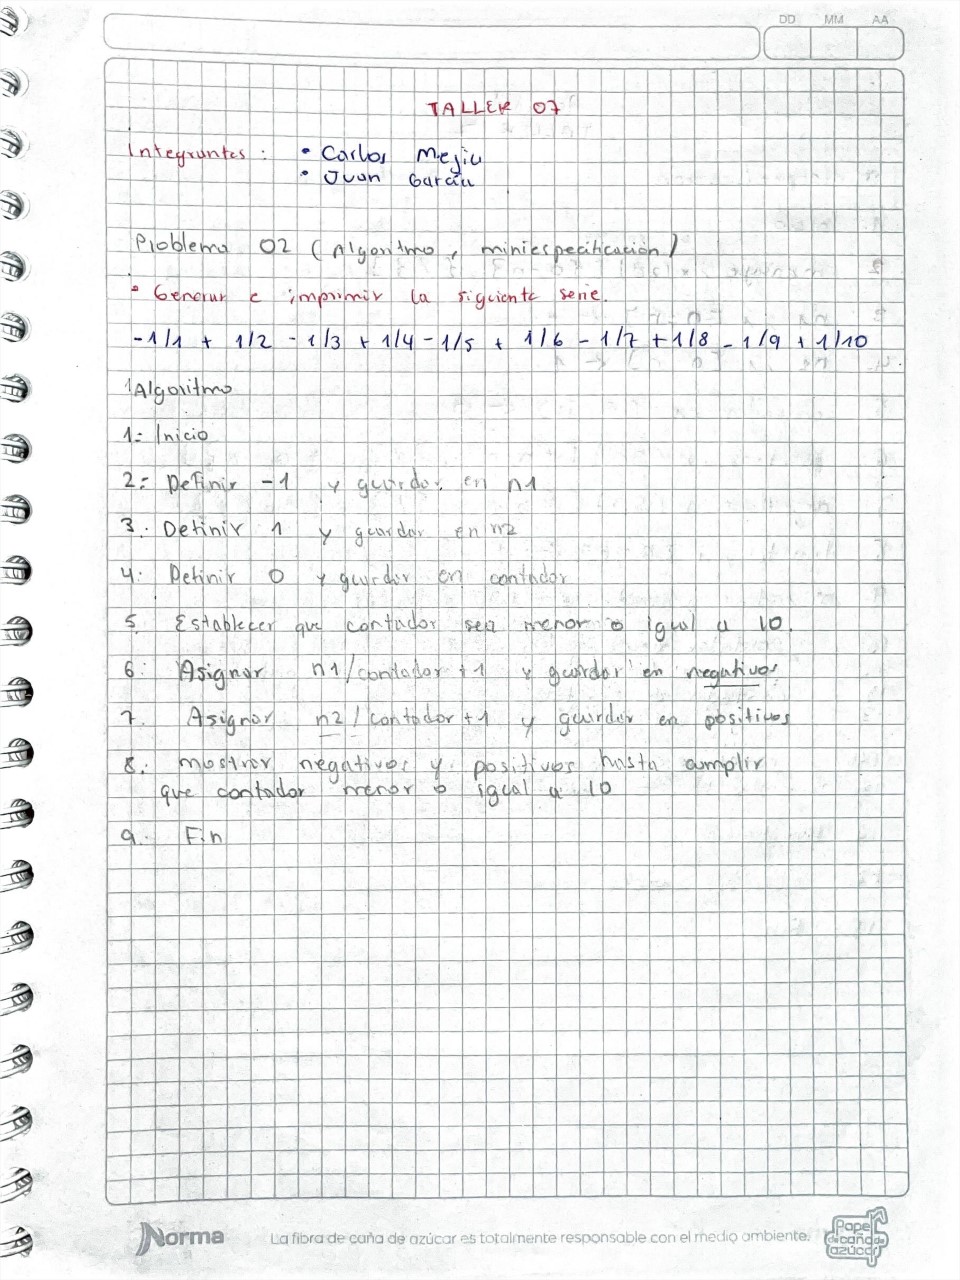 DD MM AA
TALLER 07
Integrantes : • Carlos Mejia
• Juan García
Problema 02 ( Algoritmo , miniespecificación)
• Generar e imprimir la siguiente serie.
-1/1 + 1/2 - 1/3 + 1/4 - 1/5 + 1/6 - 1/7 + 1/8 - 1/9 + 1/10
Algoritmo
1.- Inicio
2.- Definir -1 y guardar en n1
3.- Definir 1 y guardar en n2
4.- Definir 0 y guardar en contador
5. Establecer que contador sea menor o igual a 10.
6.- Asignar n1/contador +1 y guardar en negativos
7. Asignar n2/contador +1 y guardar en positivos
8.- mostrar negativos y positivos hasta cumplir
que contador menor o igual a 10
9.- Fin
Norma La fibra de caña de azúcar es totalmente responsable con el medio ambiente. Papel de caña de azúcar